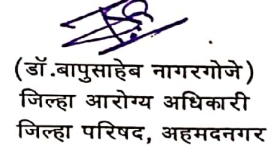 (डॉ.बापुसाहेब नागरगोजे)
जिल्हा आरोग्य अधिकारी
जिल्हा परिषद, अहमदनगर